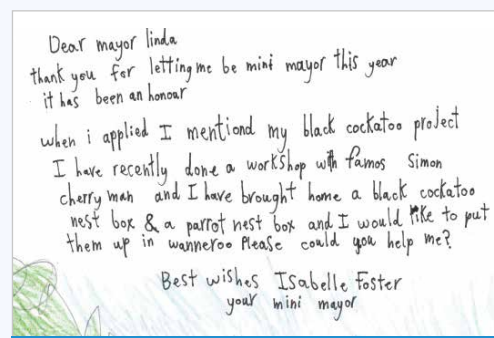 Dear mayor linda
thank you for letting me be mini mayor this year
it has been an honour
when i applied I mentiond my black cockatoo project
I have recently done a workshop with famos Simon
cherry man and I have brought home a black cockatoo
nest box & a parrot nest box and I would like to put
them up in wanneroo Please could you help me?
Best wishes Isabelle Foster
your mini mayor